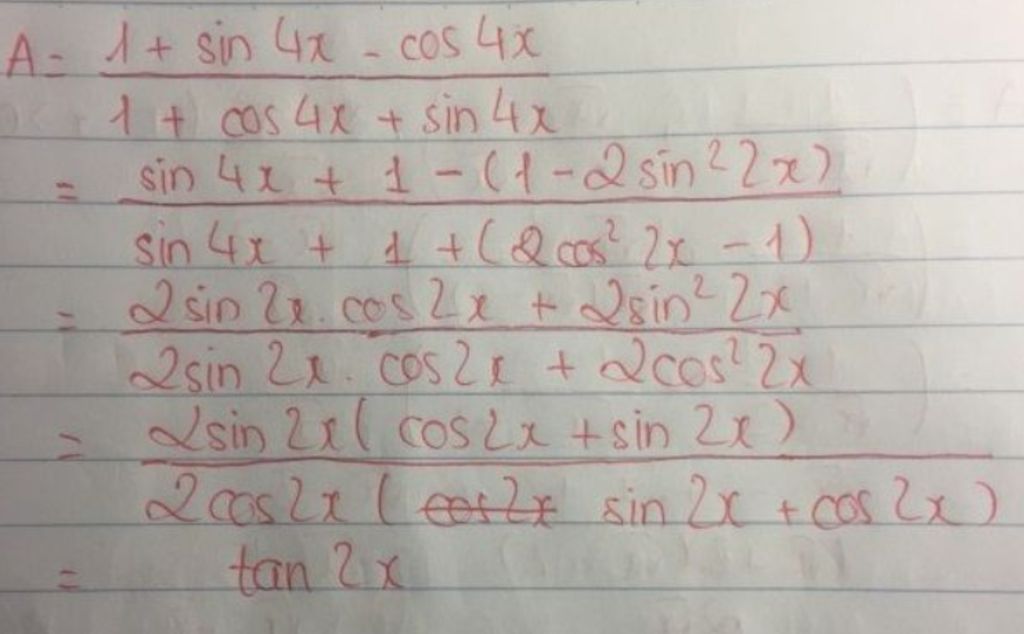 A = 1 + sin 4x - cos 4x
1 + cos 4x + sin 4x
= sin 4x + 1 - (1 - 2 sin² 2x)
sin 4x + 1 + (2 cos² 2x - 1)
= 2 sin 2x . cos 2x + 2 sin² 2x
2 sin 2x . cos 2x + 2 cos² 2x
= 2 sin 2x ( cos 2x + sin 2x )
2 cos 2x ( cos 2x sin 2x + cos 2x )
= tan 2x